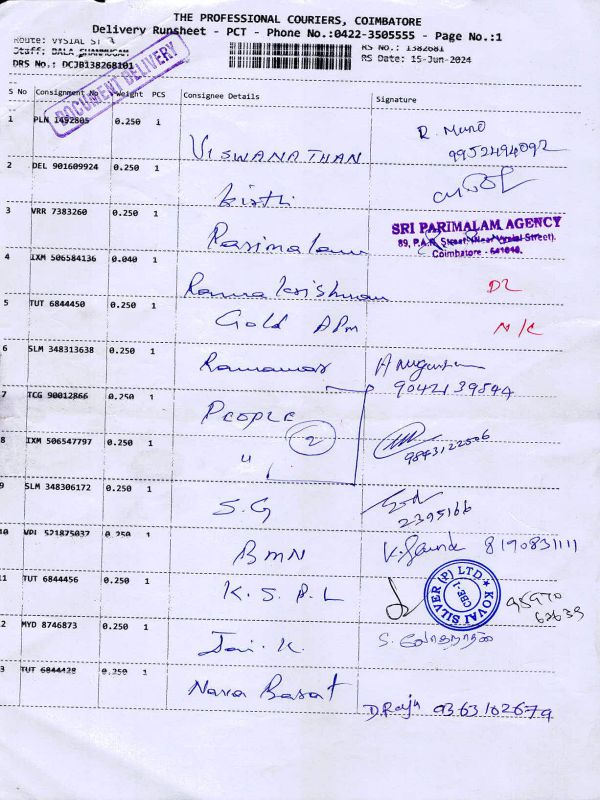 THE PROFESSIONAL COURIERS, COIMBATORE
Delivery Runsheet - PCT - Phone No.:0422-3505555 - Page No.:1
Route: VYSIAL ST
Staff: BALA SHANMUGAM
RS No.: 1382681
DRS No.: DCJB138268101
RS Date: 15-Jun-2024
DOCUMENT DELIVERY
S No Consignment No Weight PCS Consignee Details Signature
1 PLN 1492805 0.250 1 VISWANATHAN R. Muno 9952494092
2 DEL 901609924 0.250 1 Kirthi
3 VRR 7383260 0.250 1 Parimalam
SRI PARIMALAM AGENCY
89, P.A.R. Street, (Near Vysial Street).
Coimbatore - 641018.
4 IXM 506584136 0.040 1 Ramakrishnan D2
5 TUT 6844450 0.250 1 Gold APm N/C
6 SLM 348313638 0.250 1 9042139544
7 TCG 90012866 0.250 1 PEOPLE
2
8 IXM 506547797 0.250 1 " 9843122506
9 SLM 348306172 0.250 1 S.G 2395166
10 VPI 521875037 0.250 1 BMN 8190831111
11 TUT 6844456 0.250 1 K.S.B.L
KOVAI SILVER (P) LTD.
CBE-1
95970
63639
2 MYD 8746873 0.250 1 Jai.K. S.
3 TUT 6844428 0.250 1 Nava Barat D.Raju 9363102679